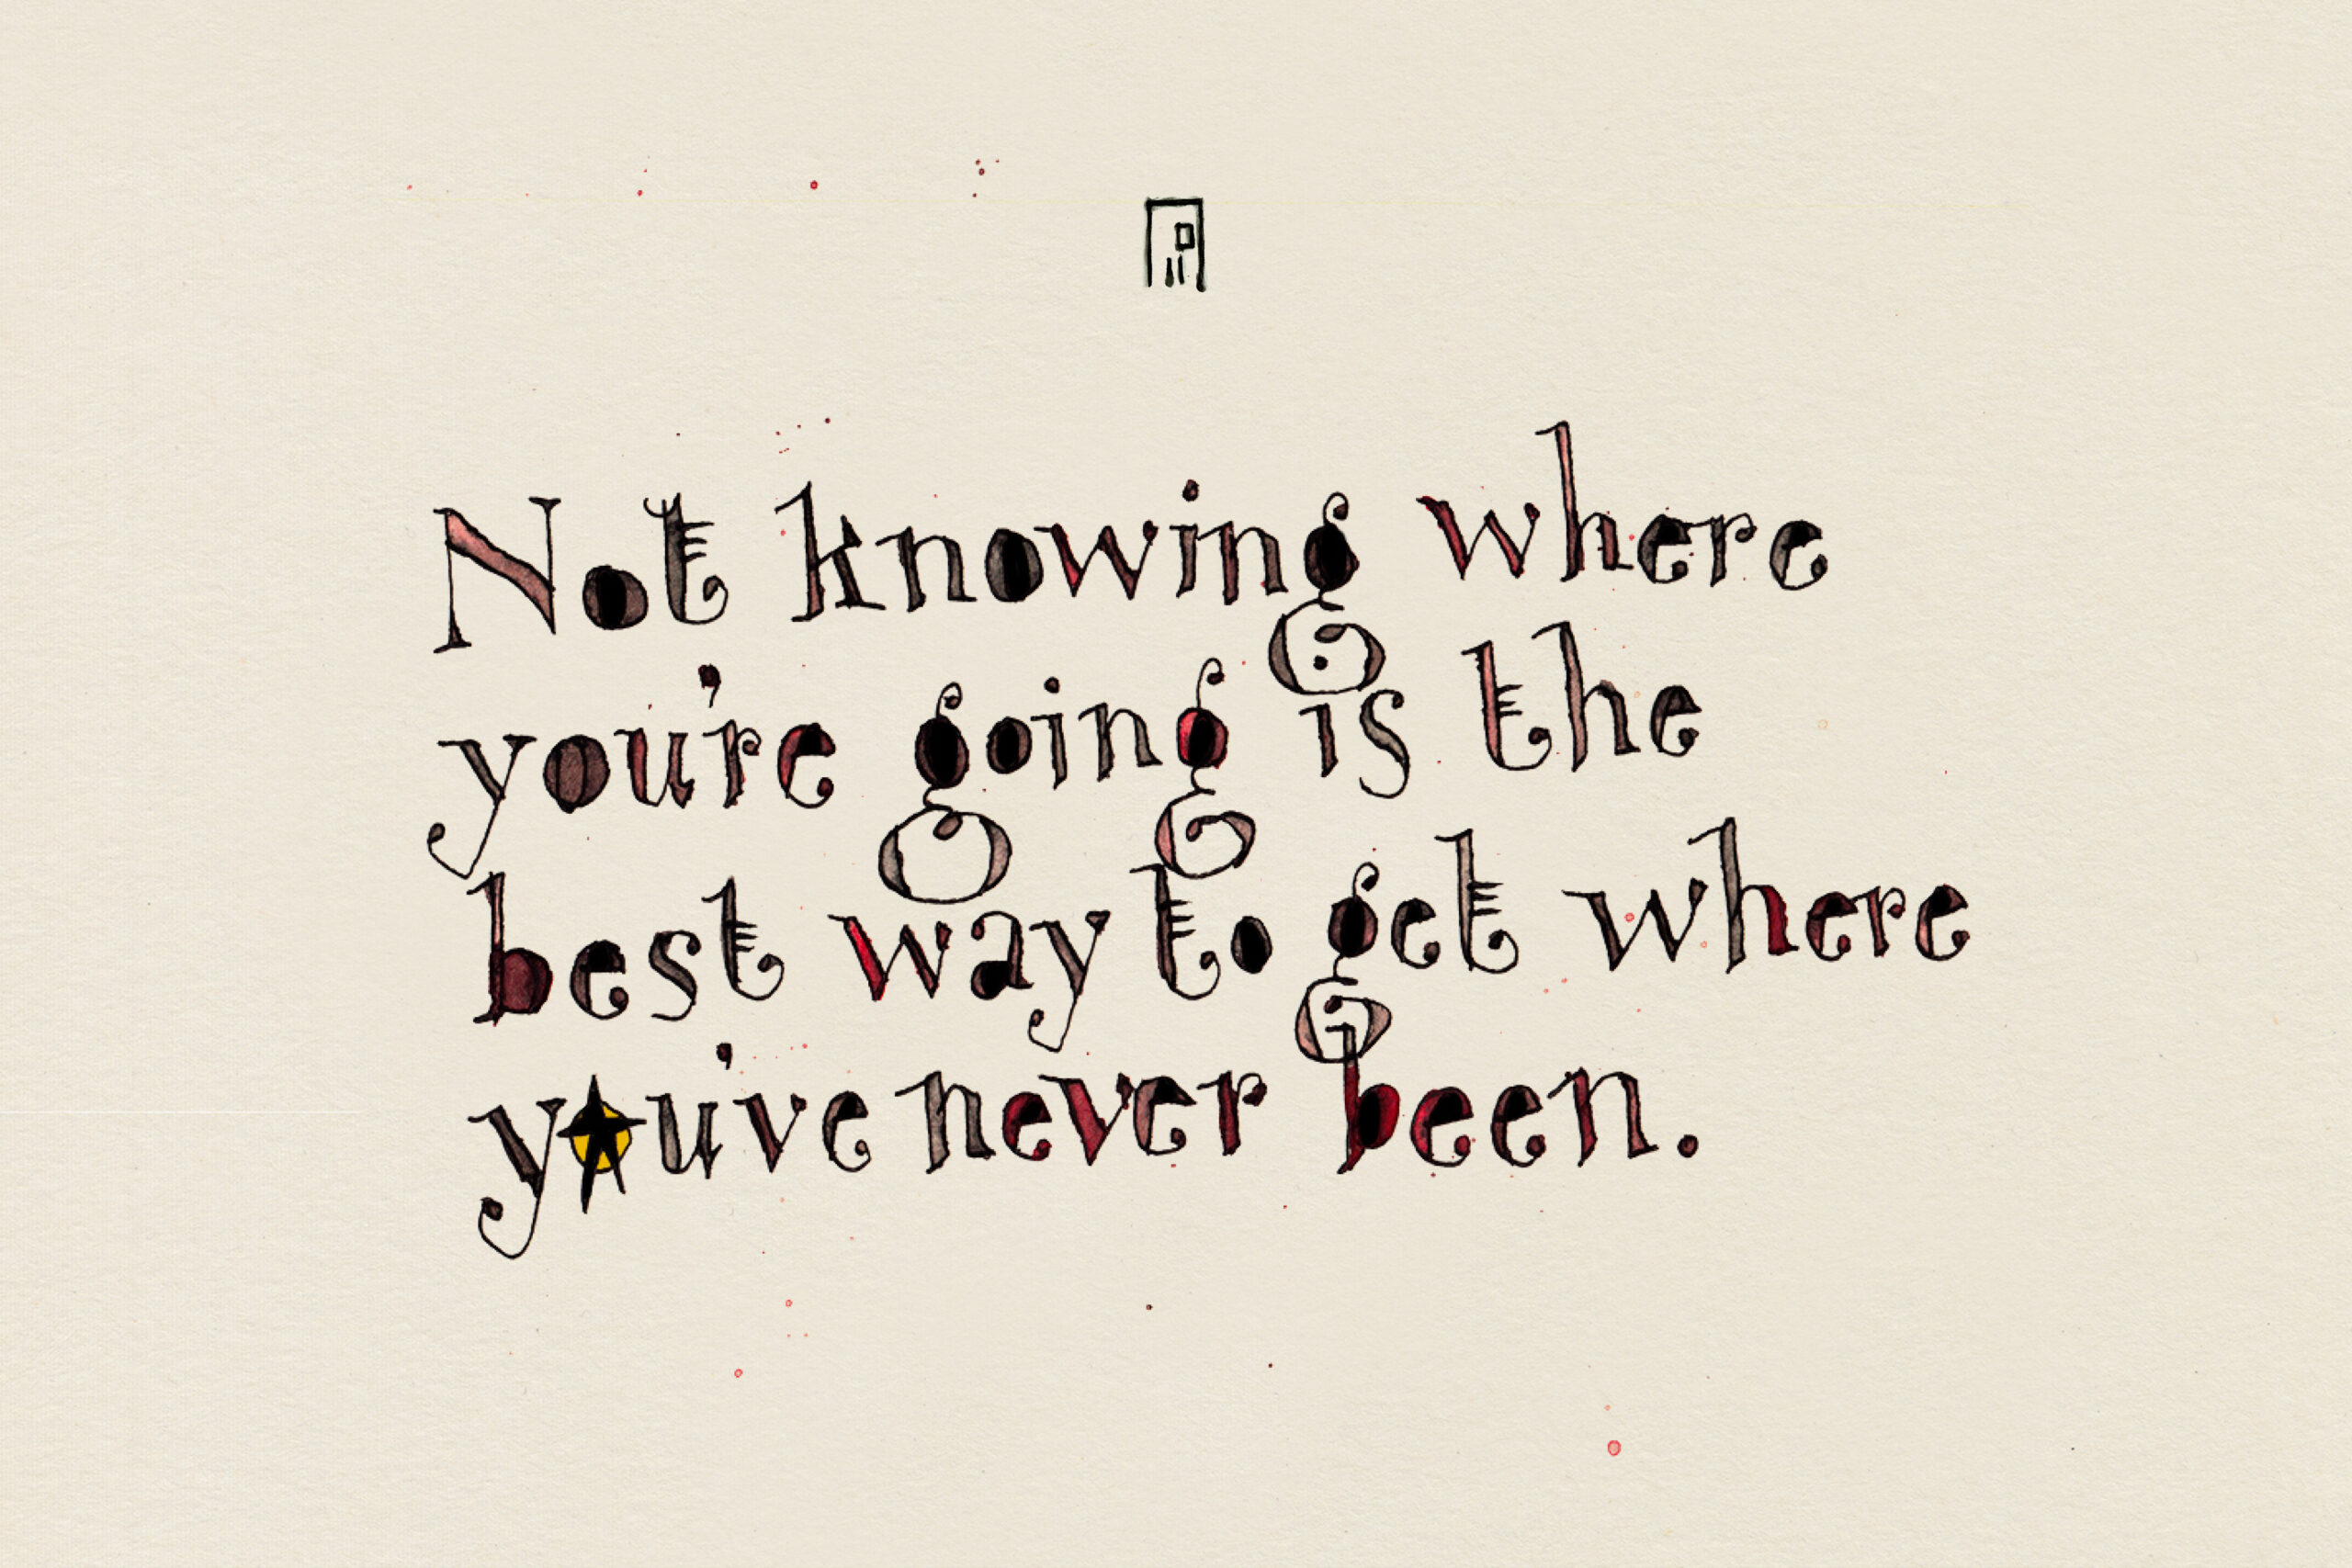 Not knowing where
you're going is the
best way to get where
you've never been.